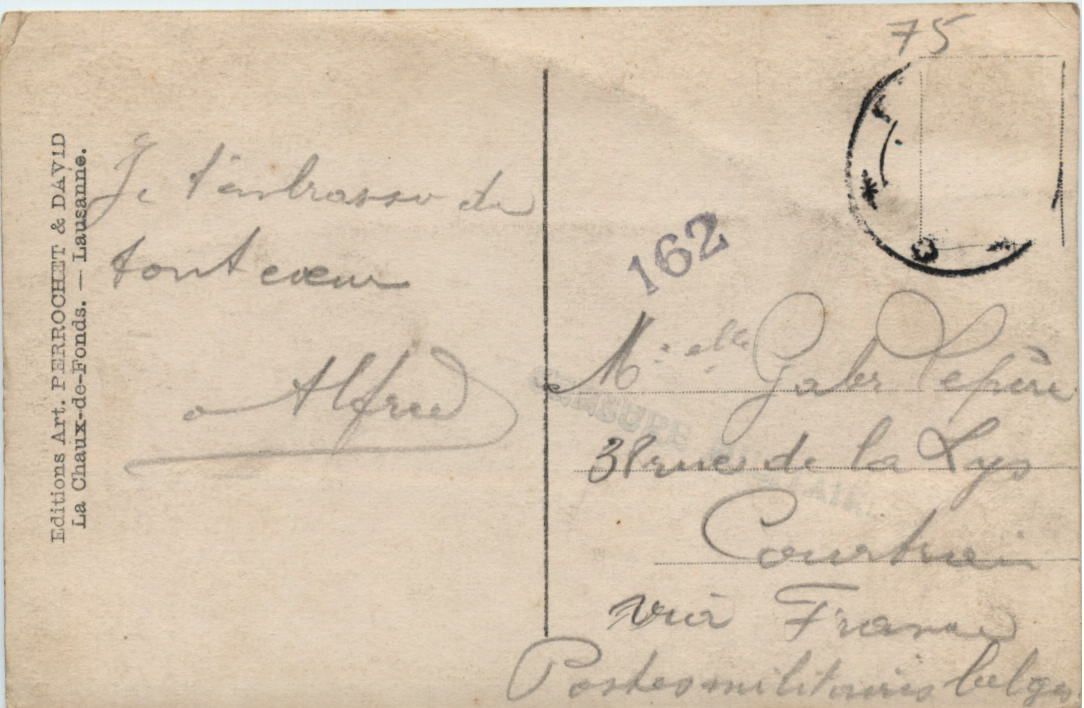 75
Editions Art. PERROCHET & DAVID
La Chaux-de-Fonds. — Lausanne.
Je t'embrasse de
tout cœur
Alfred
162
CENSURE MILITAIRE
M.elle Gabr Lepère
38 rue de la Lys
Courtrai
via France
Postes militaires belges